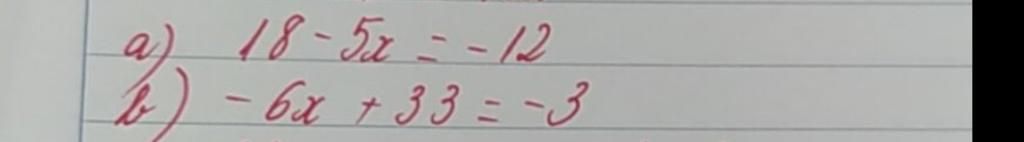 a) 18 - 5x = -12
b) - 6x + 33 = -3